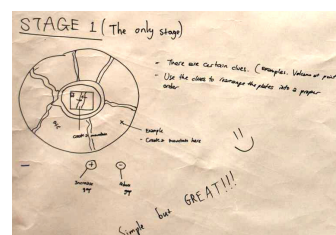 STAGE 1 (The only stage)
- There are certain clues. (examples. Volcano at point
- Use the clues to rearrange the plates into a proper
order
Example
- Create mountain here
Increase
gap
gap
Simple but GREAT!!!